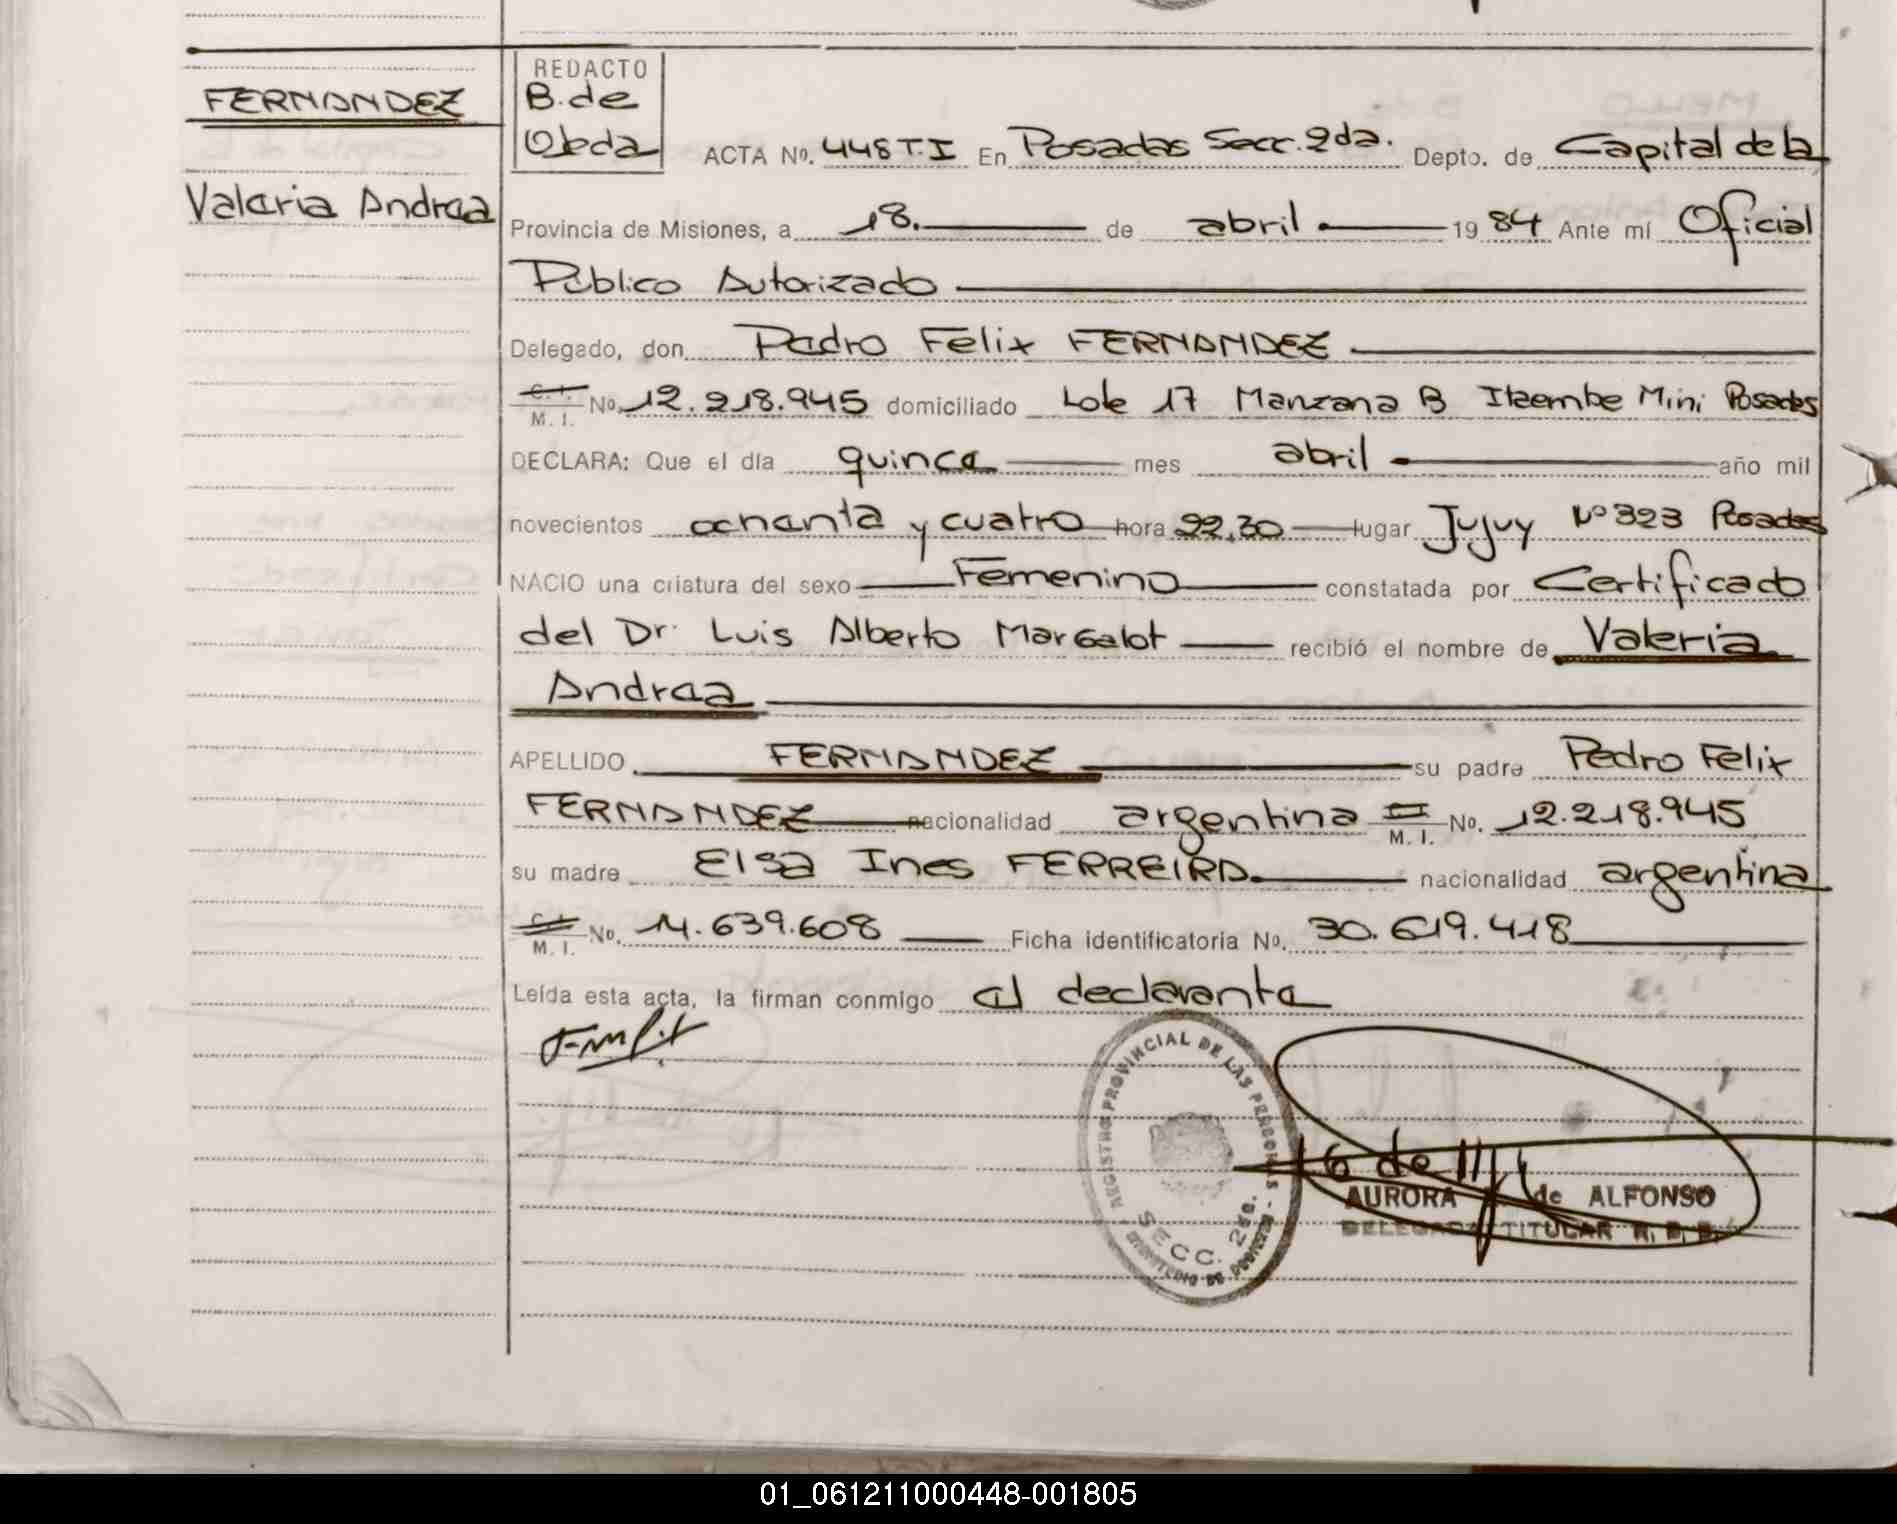 FERNANDEZ
Valeria Andrea
REDACTO
B. de
Objeda
ACTA Nº. 448 T.I En Posadas Secc. 2da. Depto. de Capital de la
Provincia de Misiones, a 18. de abril 1984 Ante mí Oficial
Público Autorizado
Delegado, don Pedro Felix FERNANDEZ
C. I. M. I. Nº. 12.218.945 domiciliado Lote 17 Manzana B Itaembe Mini Posadas
DECLARA: Que el día quince mes abril año mil
novecientos ochenta y cuatro hora 22,30 lugar Jujuy Nº 323 Posadas
NACIO una criatura del sexo Femenino constatada por Certificado
del Dr. Luis Alberto Margalot recibió el nombre de Valeria
Andrea
APELLIDO FERNANDEZ su padre Pedro Felix
FERNANDEZ nacionalidad argentina M. I. Nº. 12.218.945
su madre Elsa Ines FERREIRA. nacionalidad argentina
C. I. M. I. Nº. 14.639.608 Ficha identificatoria Nº. 30.619.418
Leída esta acta, la firman conmigo el declarante
REGISTRO PROVINCIAL DE LAS PERSONAS
SECC. 2da.
AURORA de ALFONSO
DELEGADA TITULAR R. P. P.
01_061211000448-001805